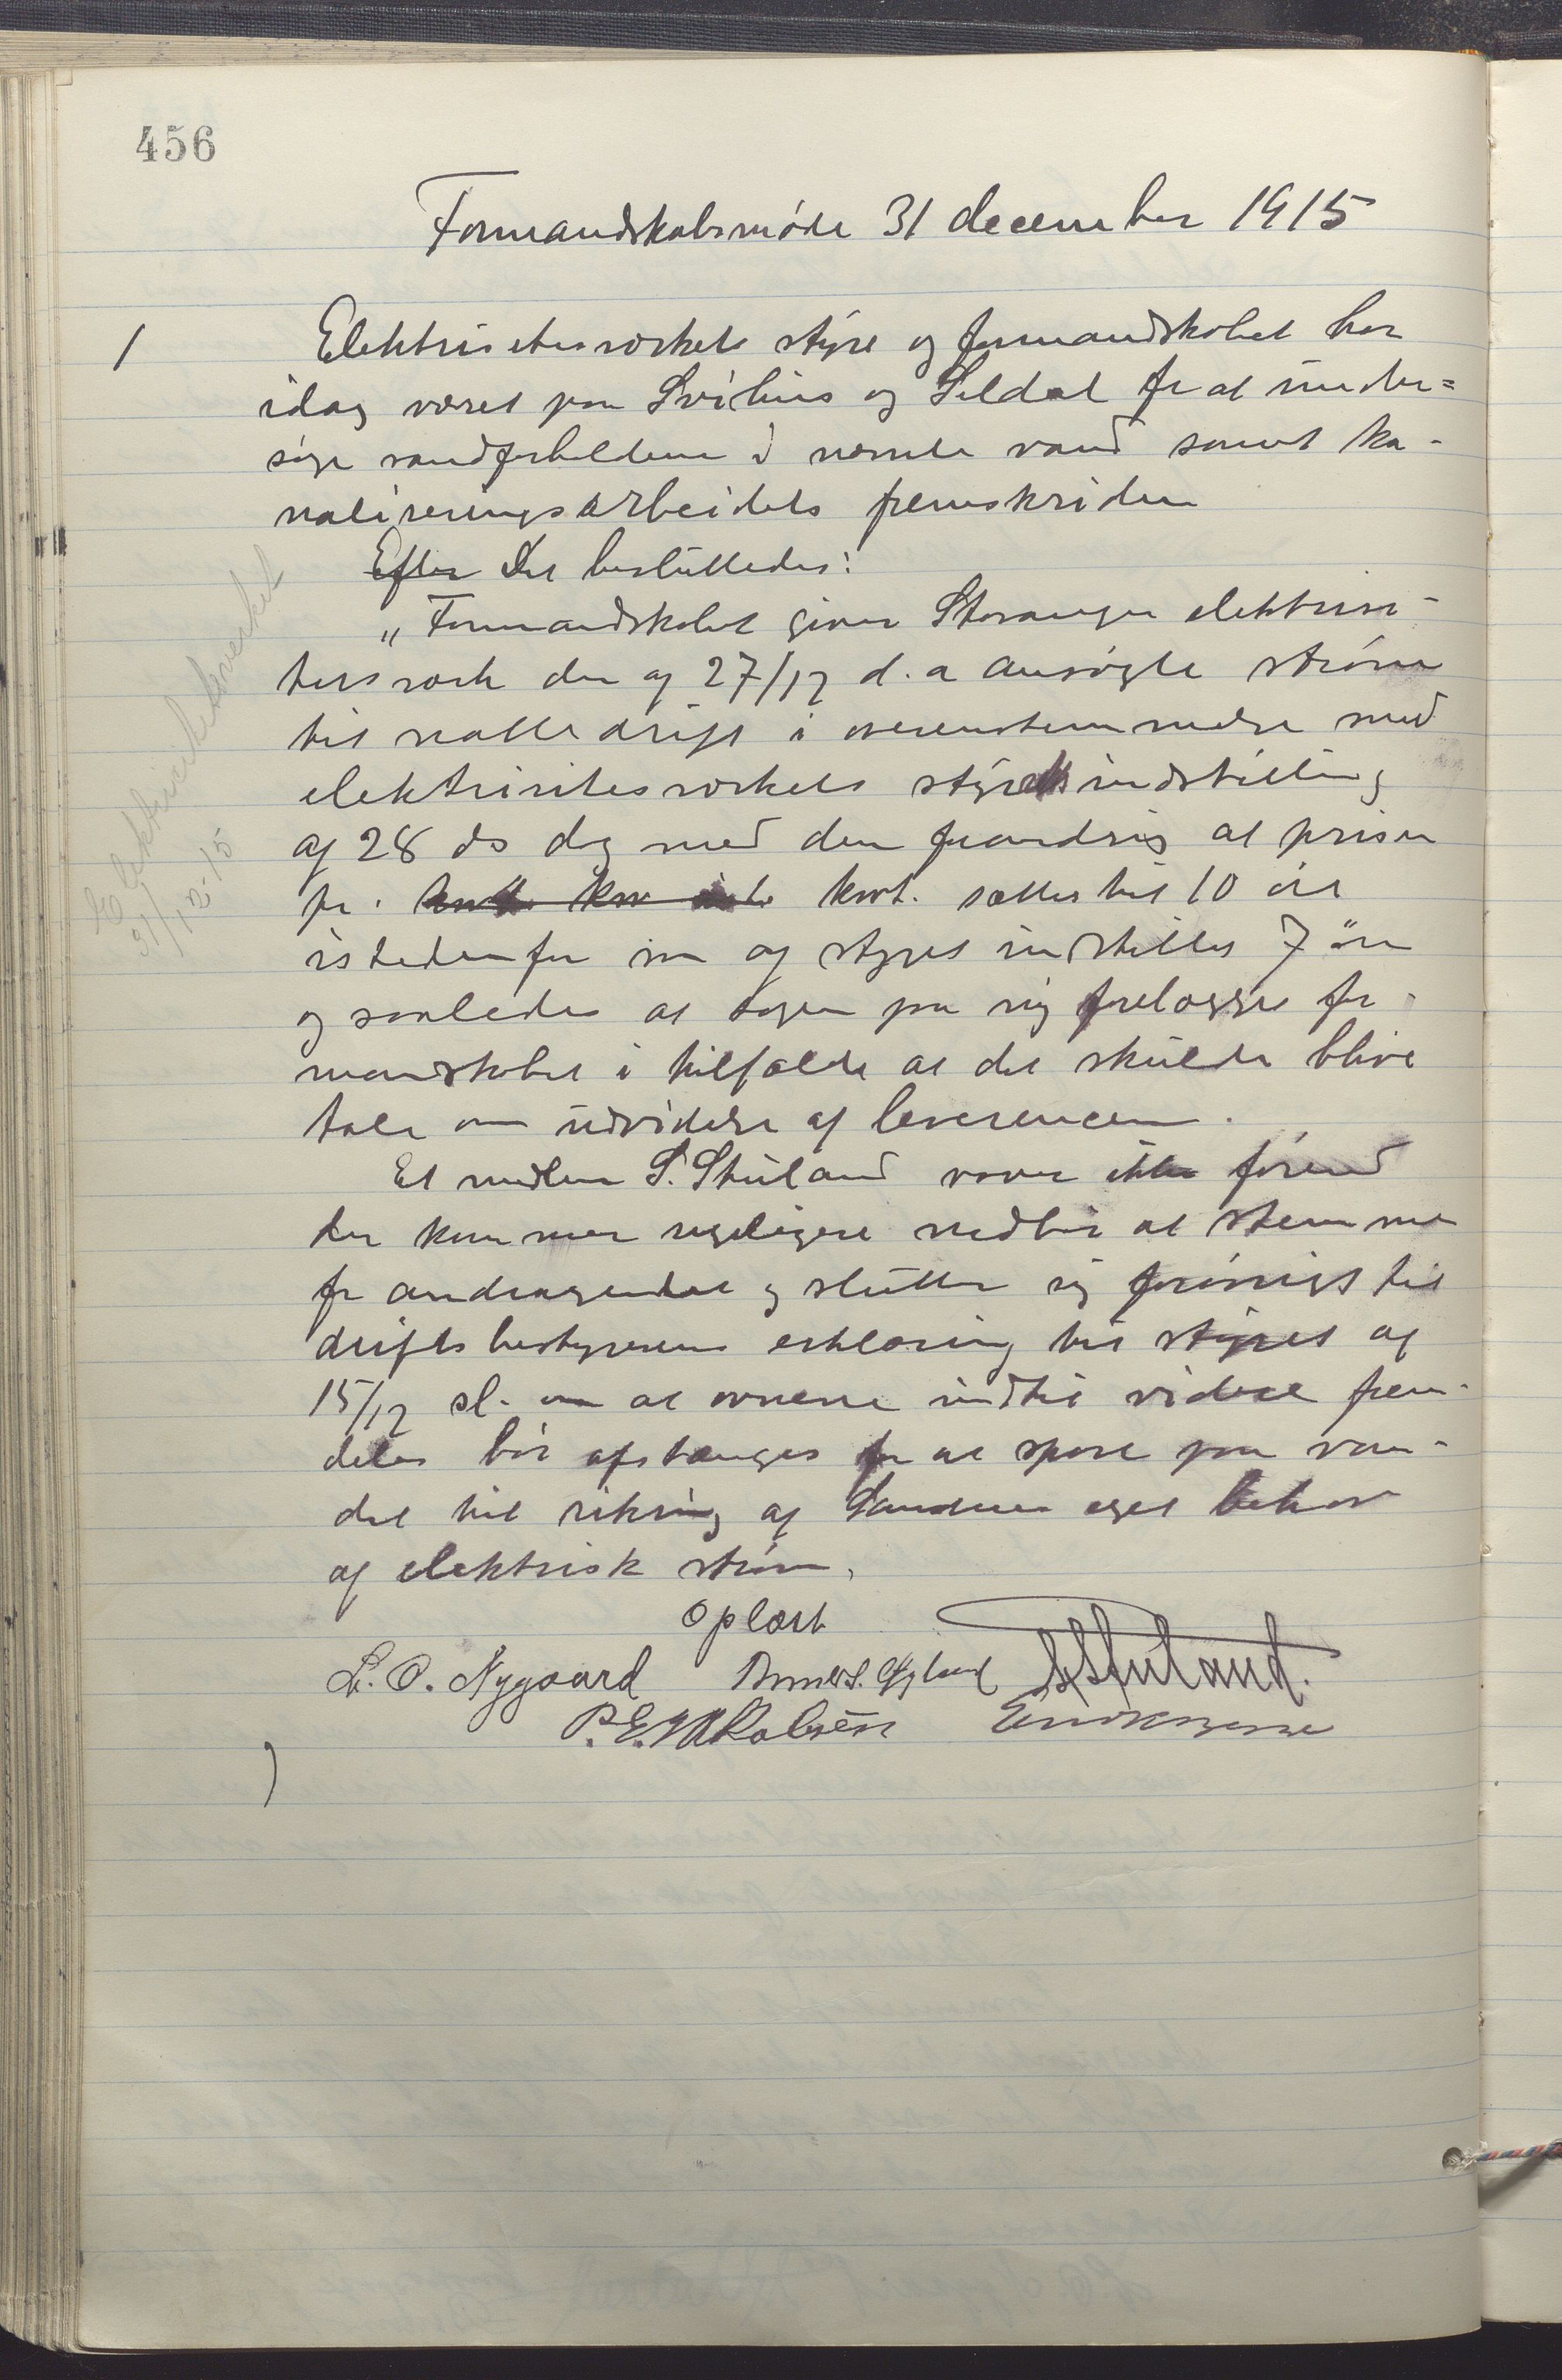 456
Formandskabsmøde 31 december 1915
1
Elektrisitetsværkets styre og formandskabet har
idag været paa Svihus og Seldal for at under=
søge vandforholdene i nævnte vand samt ka-
naliseringsarbeidets fremskriden
Efter Det besluttedes:
„Formandskabet giver Stavanger elektrisi-
tetsværk den af 27/12 d.a ansøgte strøm
til natte drift i overenstemmelse med
elektrisitesværkets styres indstilling
af 28 ds dog med den forandring at prisen
pr. kwt. sættes til 10 øre
istedenfor som af styret indstilles 7 øre
og saaledes at sagen paa ny forelægges for-
mandskabet i tilfælde at det skulde blive
tale om udvidelse af leverencen.
Et medlem S. Stuland vover ikke førend
der kommer rigeligere nedbør at stemme
for andragendet og slutter sig forøvrigt til
driftsbestyrerens erklæring til styret af
15/12 sl. om at ovnene indtil videre frem-
deles bør afstænges for at spare paa van-
det til sikring af Sandnes eget behov
af elektrisk strøm.
Oplæst
L. O. Nygaard S Stuland.
P. E.
Elektrisitetsverket
31/12-15